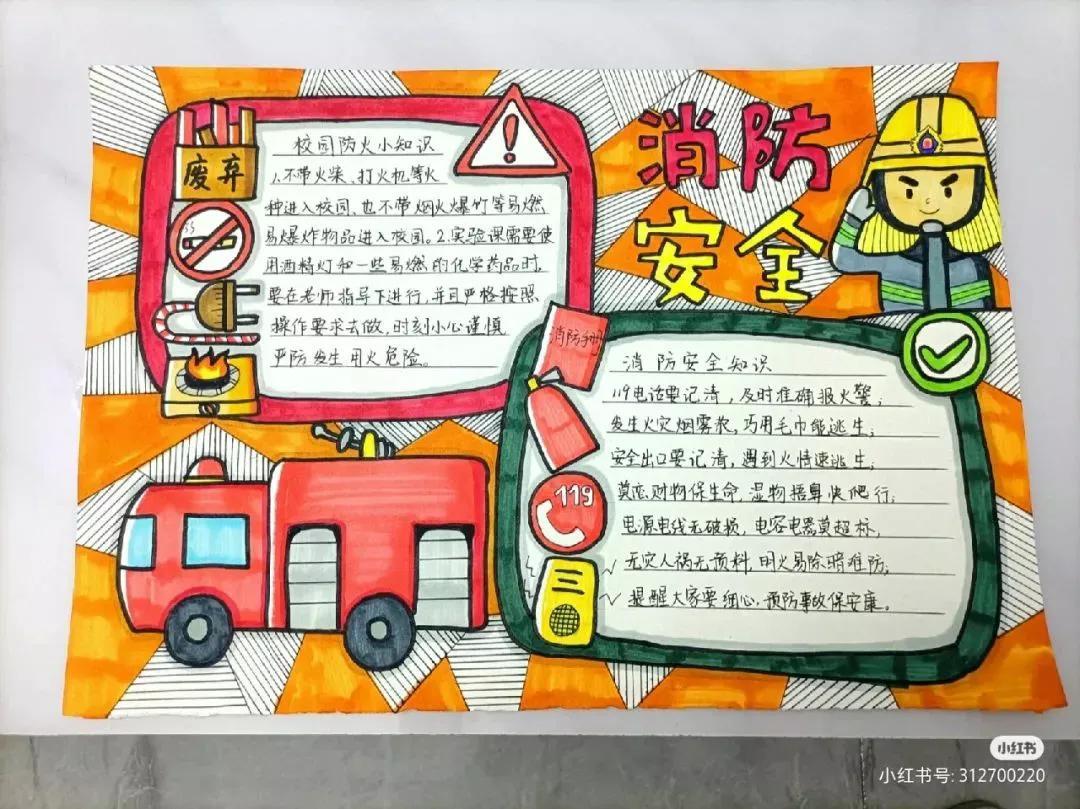 消防
安全
废弃
校园防火小知识
1.不带火柴、打火机等火
种进入校园、也不带烟火爆竹等易燃
易爆炸物品进入校园。2.实验课需要使
用酒精灯和一些易燃的化学药品时,
要在老师指导下进行,并且严格按照
操作要求去做,时刻小心谨慎
严防发生用火危险。
消防手册
消防安全知识
119电话要记清,及时准确报火警;
发生火灾烟雾浓,巧用毛巾能逃生;
安全出口要记清,遇到火情速逃生;
莫恋财物保生命,湿物捂鼻快爬行;
电源电线无破损,电容电器莫超标,
天灾人祸无预料,明火易除暗难防;
提醒大家要细心,预防事故保安康。
119
小红书
小红书号: 312700220